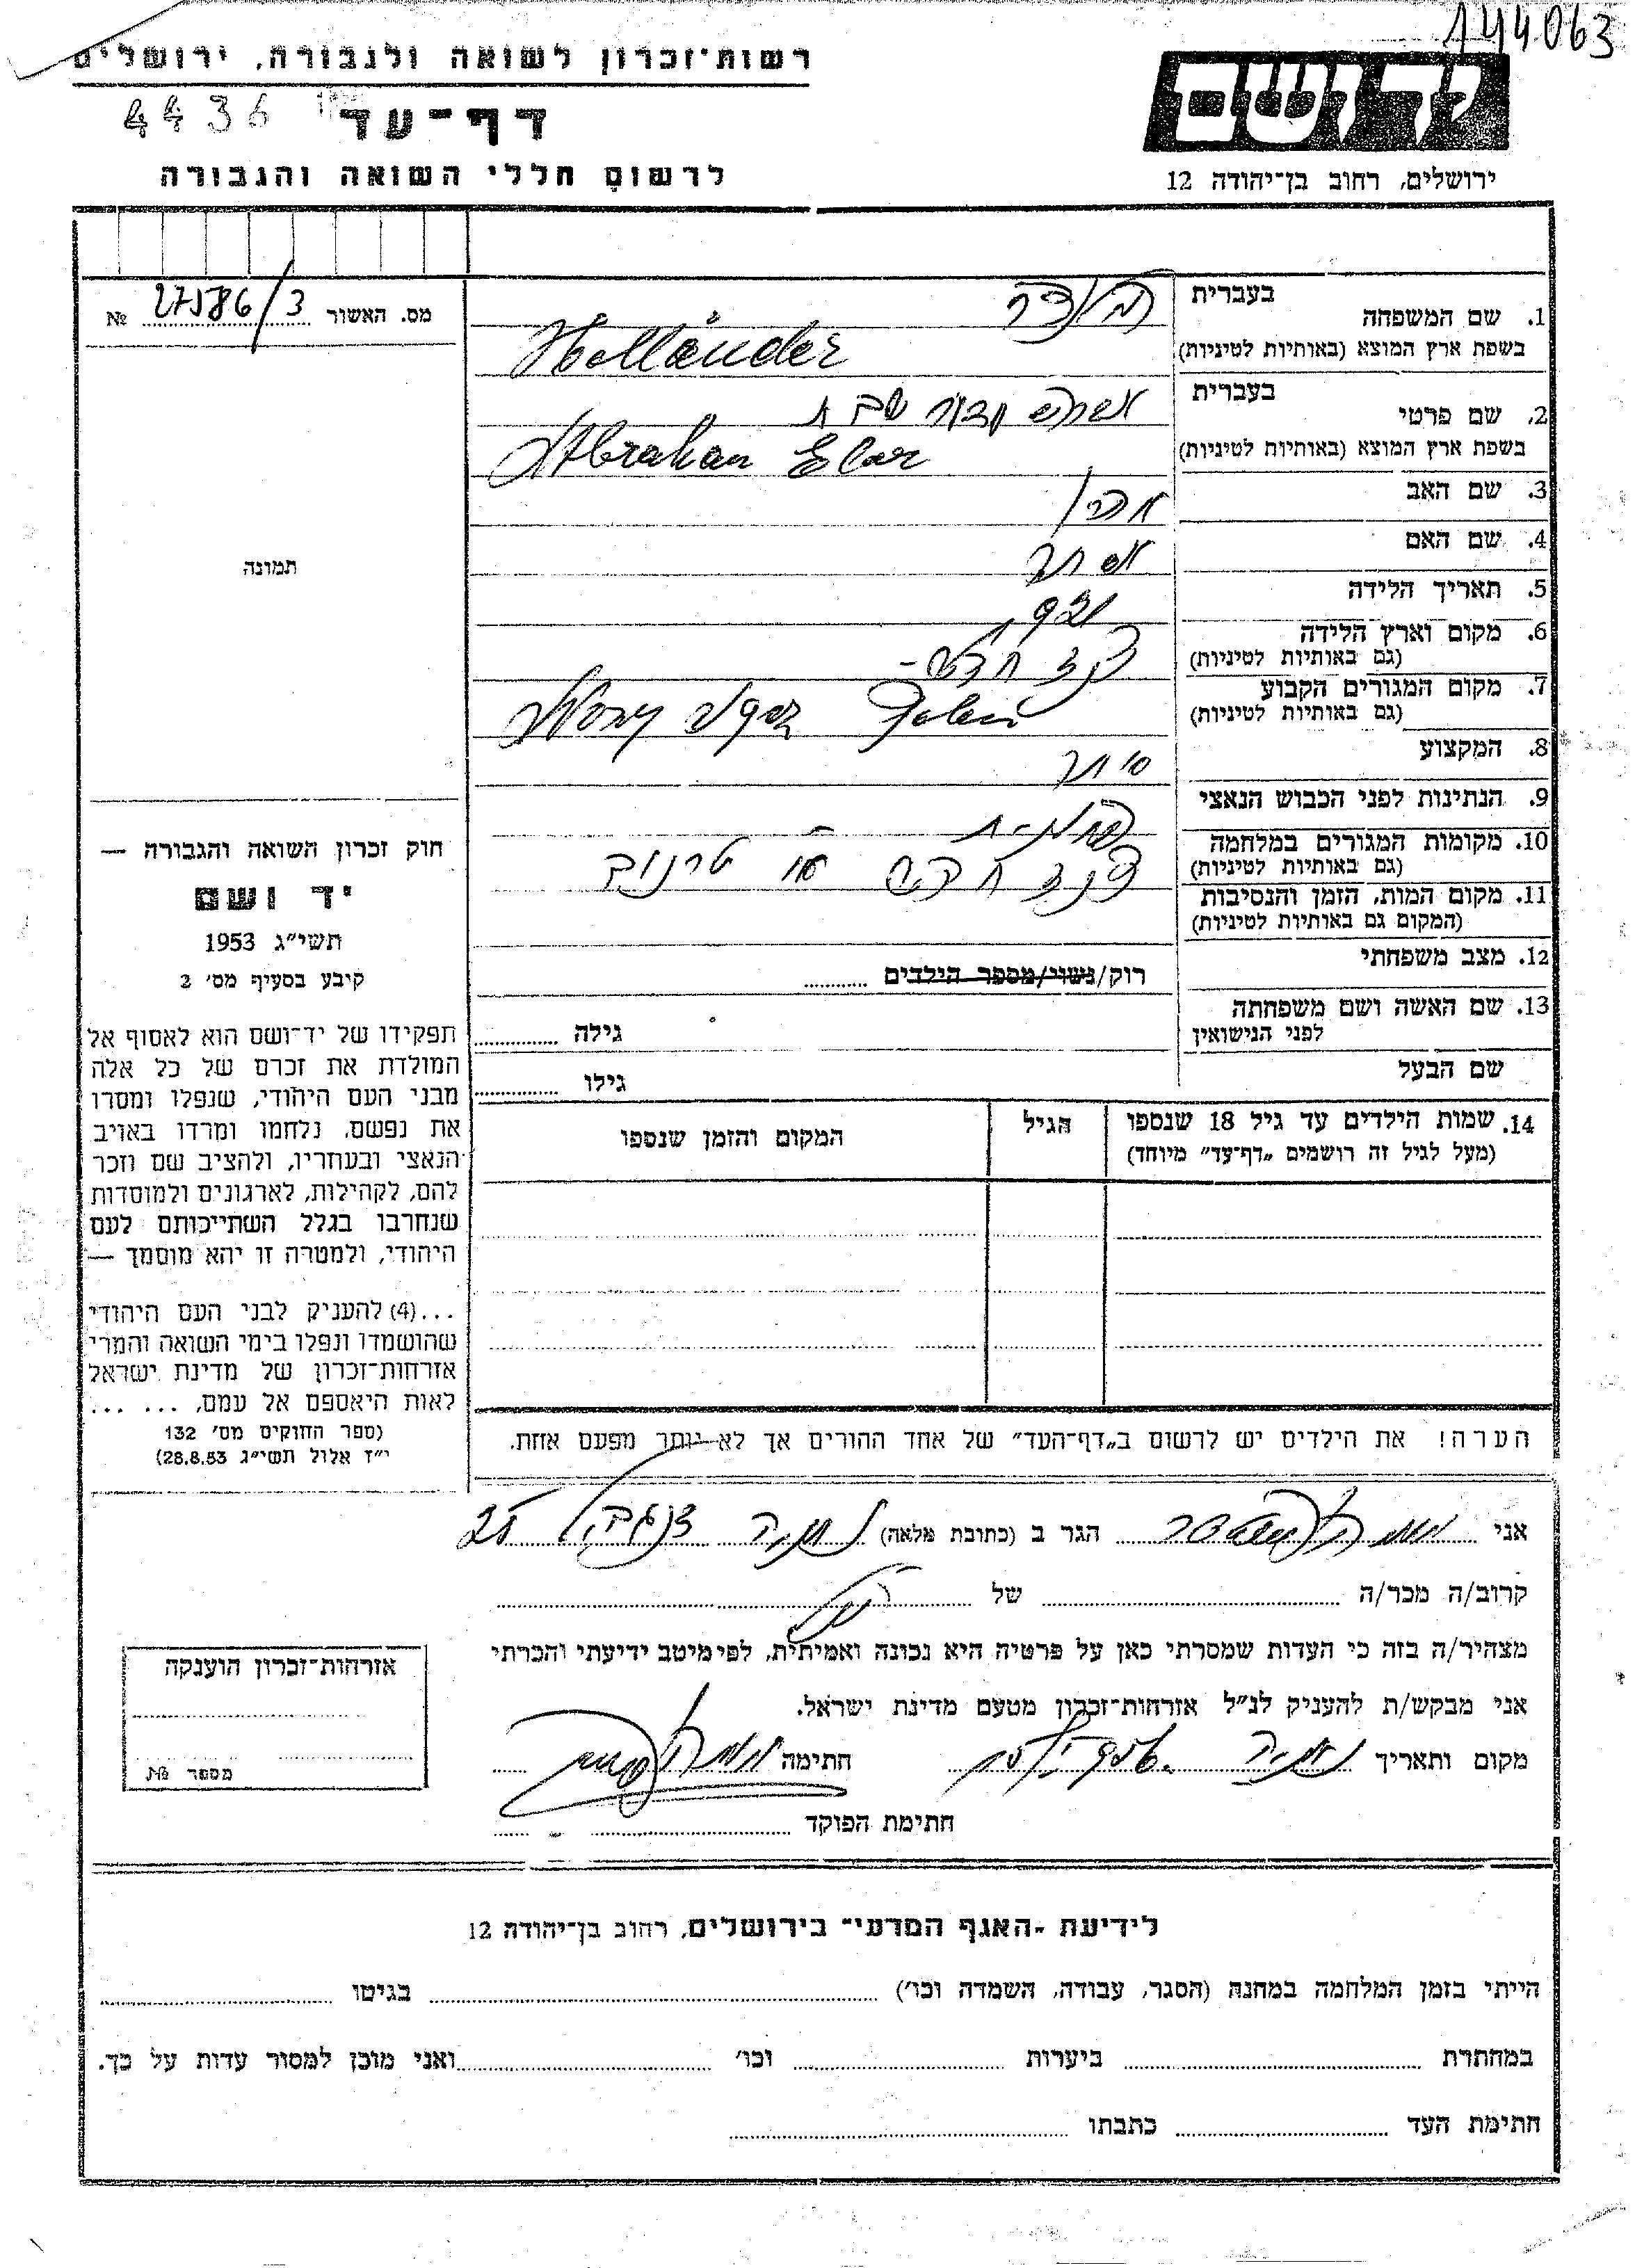 144063
רשות־זכרון לשואה ולגבורה, ירושלים
4436
דף־עד
לרשום חללי השואה והגבורה
יד ושם
ירושלים, רחוב בן־יהודה 12
מס. האשור 27586/3 №
תמונה
חוק זכרון השואה והגבורה —
יד ושם
תשי״ג 1953
קיבע בסעיף מס׳ 2
תפקידו של יד־ושם הוא לאסוף אל
המולדת את זכרם של כל אלה
מבני העם היהודי, שנפלו ומסרו
את נפשם, נלחמו ומרדו באויב
הנאצי ובעוזריו, ולהציב שם וזכר
להם, לקהילות, לארגונים ולמוסדות
שנחרבו בגלל השתייכותם לעם
היהודי, ולמטרה זו יהא מוסמך —
...(4) להעניק לבני העם היהודי
שהושמדו ונפלו בימי השואה והמרי
אזרחות־זכרון של מדינת ישראל
לאות היאספם אל עמם, ... ...
(ספר החוקים מס׳ 132
י״ז אלול תשי״ג 28.8.53)
1. שם המשפחה בעברית הולנדר
בשפת ארץ המוצא (באותיות לטיניות) Holländer
2. שם פרטי בעברית אברהם
בשפת ארץ המוצא (באותיות לטיניות) Abraham
3. שם האב אהרן
4. שם האם אסתר
5. תאריך הלידה
6. מקום וארץ הלידה
(גם באותיות לטיניות)
7. מקום המגורים הקבוע
(גם באותיות לטיניות)
8. המקצוע סוחר
9. הנתינות לפני הכבוש הנאצי
10. מקומות המגורים במלחמה
(גם באותיות לטיניות)
11. מקום המות, הזמן והנסיבות
(המקום גם באותיות לטיניות)
12. מצב משפחתי רוק/נשוי/מספר הילדים
13. שם האשה ושם משפחתה
לפני הנישואין גילה
שם הבעל גילו
14. שמות הילדים עד גיל 18 שנספו הגיל המקום והזמן שנספו
(מעל לגיל זה רושמים „דף־עד״ מיוחד)
הערה! את הילדים יש לרשום ב„דף־העד״ של אחד ההורים אך לא יותר מפעם אחת.
אני הגר ב (כתובת מלאה) נתניה 25
קרוב/ה מכר/ה של
מצהיר/ה בזה כי העדות שמסרתי כאן על פרטיה היא נכונה ואמיתית, לפי מיטב ידיעתי והכרתי
אני מבקש/ת להעניק לנ״ל אזרחות־זכרון מטעם מדינת ישראל.
מקום ותאריך נתניה חתימה
חתימת הפוקד
אזרחות־זכרון הוענקה
מספר №
לידיעת „האגף המדעי״ בירושלים, רחוב בן־יהודה 12
הייתי בזמן המלחמה במחנה (הסגר, עבודה, השמדה וכו׳) בגיטו
במחתרת ביערות וכו׳ ואני מוכן למסור עדות על כך.
חתימת העד כתבתו